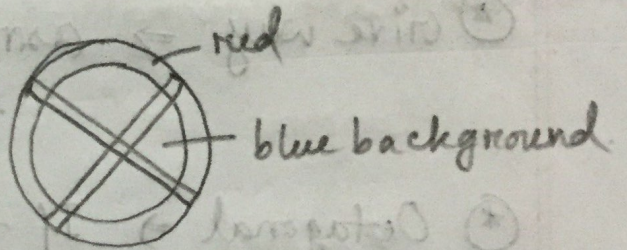 red
blue background